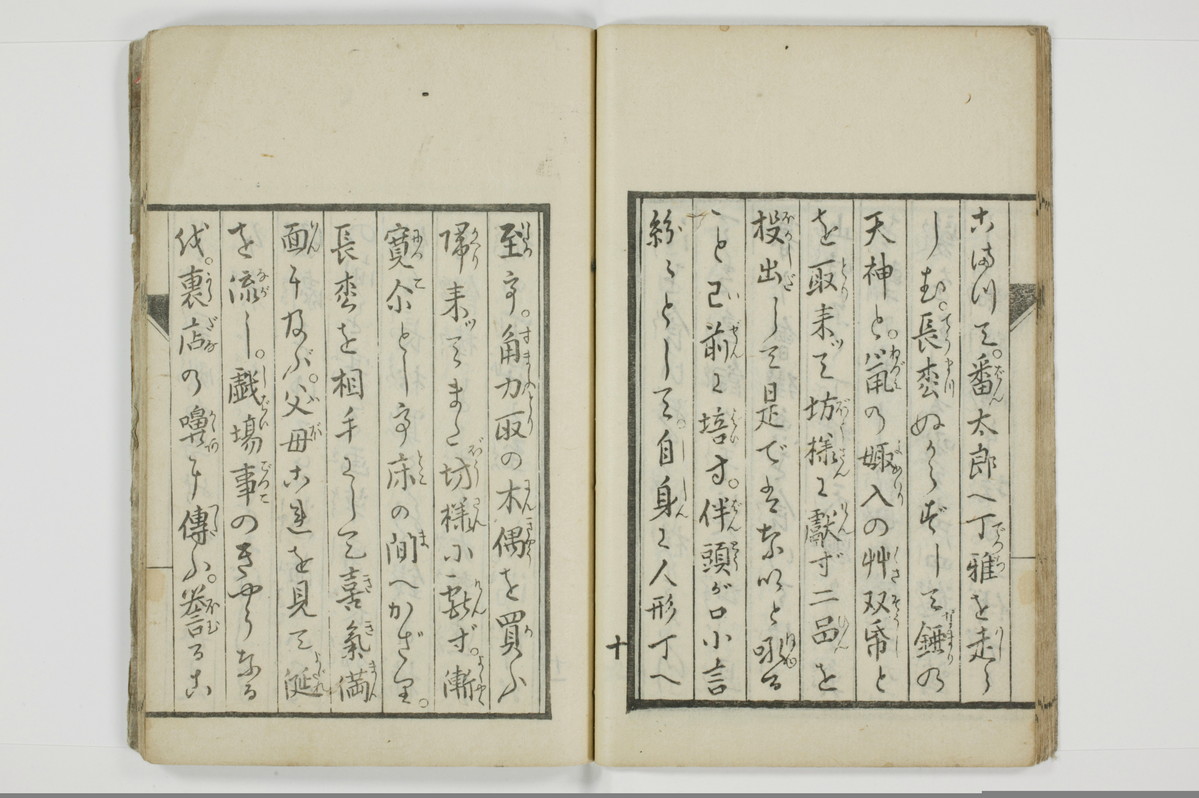 こまりて。番太郎へ丁雅を走ら
しむ。長松ぬからずして錘の
天神と。鼠の娵入の艸双帋と
を取来ッて坊様に獻ず二品を
投出して是で
ゝと已前に培す。伴頭が口小言
紛々として。自身に人形丁へ
十
至て。角力取の木偶を買ふ
帰来ッてまた坊様に献ず。漸
寛尓として床の間へかざり。
長松を相手にして喜氣満
面に及ぶ。父母これを見て涎
を流し。戯場事のきやうなる
伐。裏店の嚊に傳ふ。誉るこ